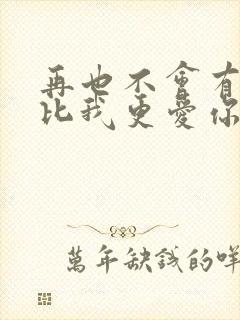 再也不會有
比我更愛你
萬年缺錢的咩